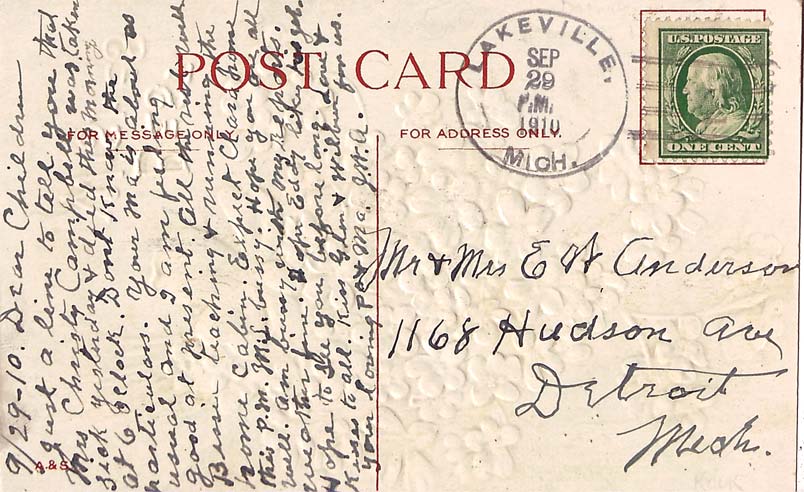 POST CARD
FOR MESSAGE ONLY.
FOR ADDRESS ONLY.
LAKEVILLE,
SEP
29
P.M.
1910
MICH.
U.S. POSTAGE
ONE CENT
9/29-10. Dear Children
Just a line to tell you that
Mrs Christy Campbell was taken
sick yesterday & died this morning
at 6 Oclock. Dont Know the
particulars. Your Ma is about as
usual and I am feeling
good at present. All the rest well
Bernie teaching & running the
home cabin. Expect Charl home
this P.M. Mrs. bussy. Hope you are all
well. Am bussy with my
weather fine. Hope Eddy likes
Hope to see you before long. Love &
Kisses to all. Kiss Glen & Wilbur for us.
Your loving Pa & Ma. J.H.A.
Mr & Mrs E W Anderson
1168 Hudson Ave
Detroit
Mich.
A.&S.